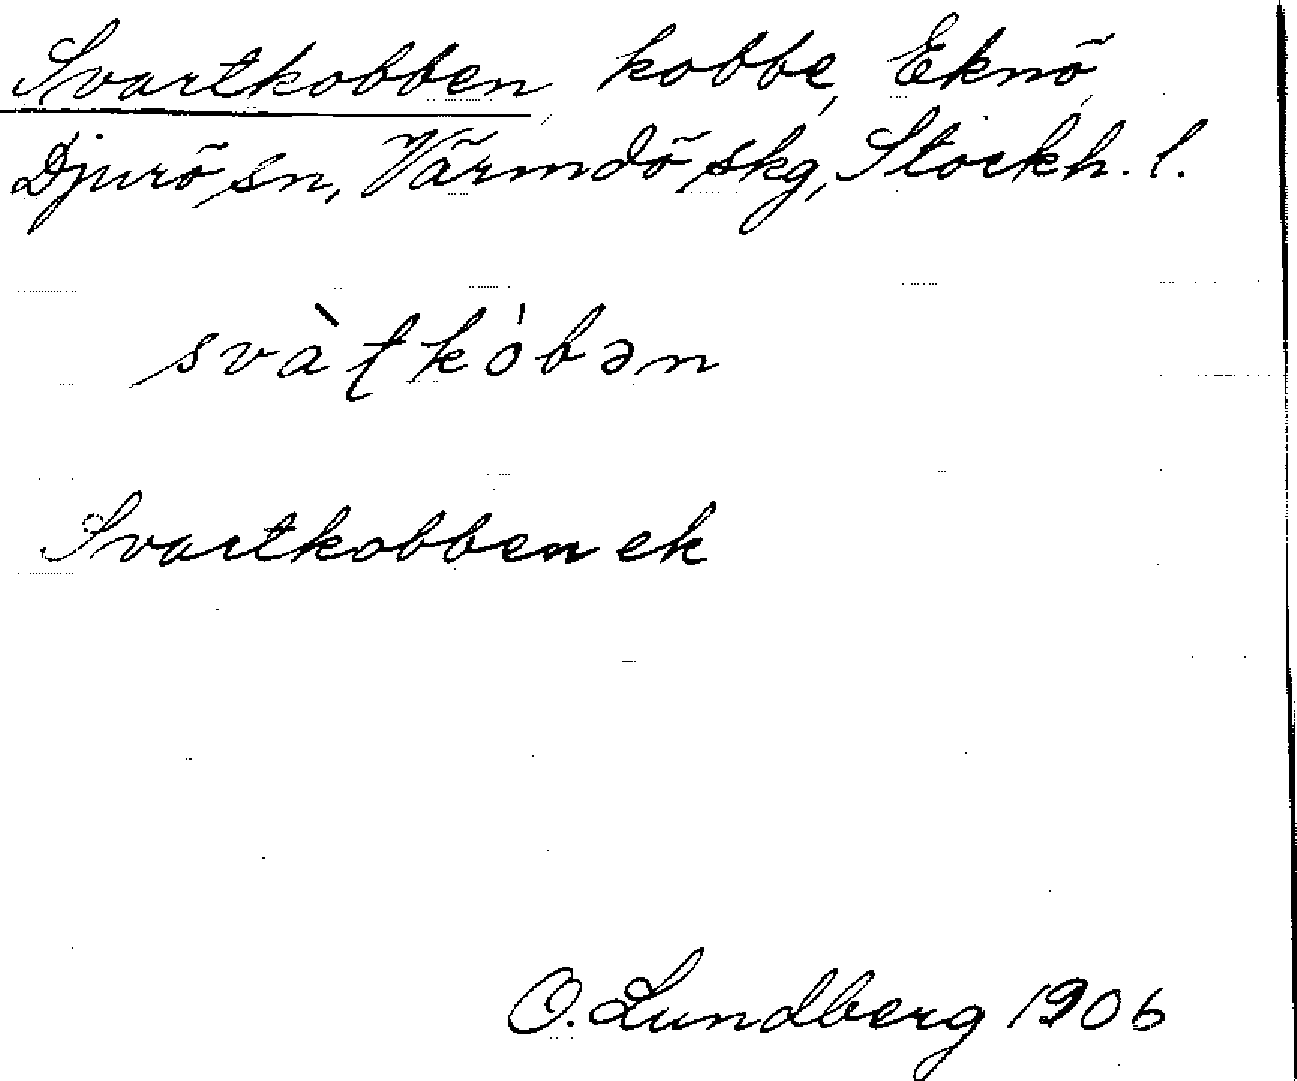 Svartkobben, kobbe, Eknö,
Djurö sn, Värmdö skg, Stockh. l.
svàʈkòbən
Svartkobben ek
O. Lundberg 1906